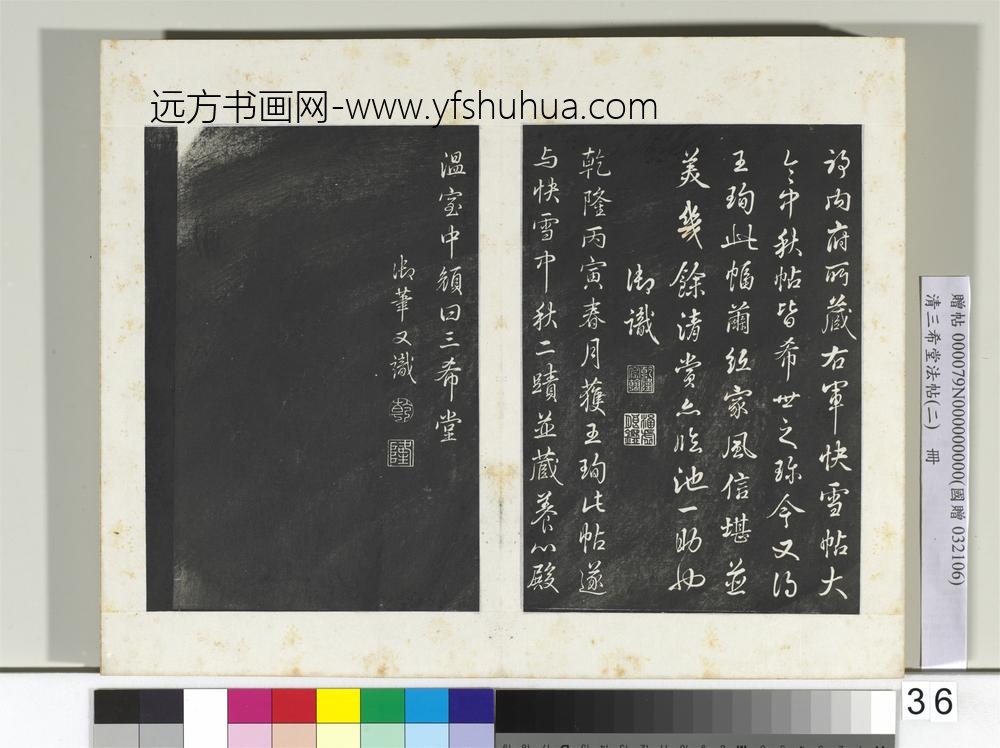 远方书画网-www.yfshuhua.com
內府所藏右軍快雪帖大
令中秋帖皆希世之珎今又得
王珣此幅繭紙家風信堪並
美幾餘清賞亦臨池一助也
御識
乾隆
宸翰
乾隆丙寅春月獲王珣此帖遂
与快雪中秋二蹟並藏養心殿
溫室中顏曰三希堂
御筆又識
乾
隆
贈帖 000079N000000000(國贈 032106)
清三希堂法帖(二) 冊
36